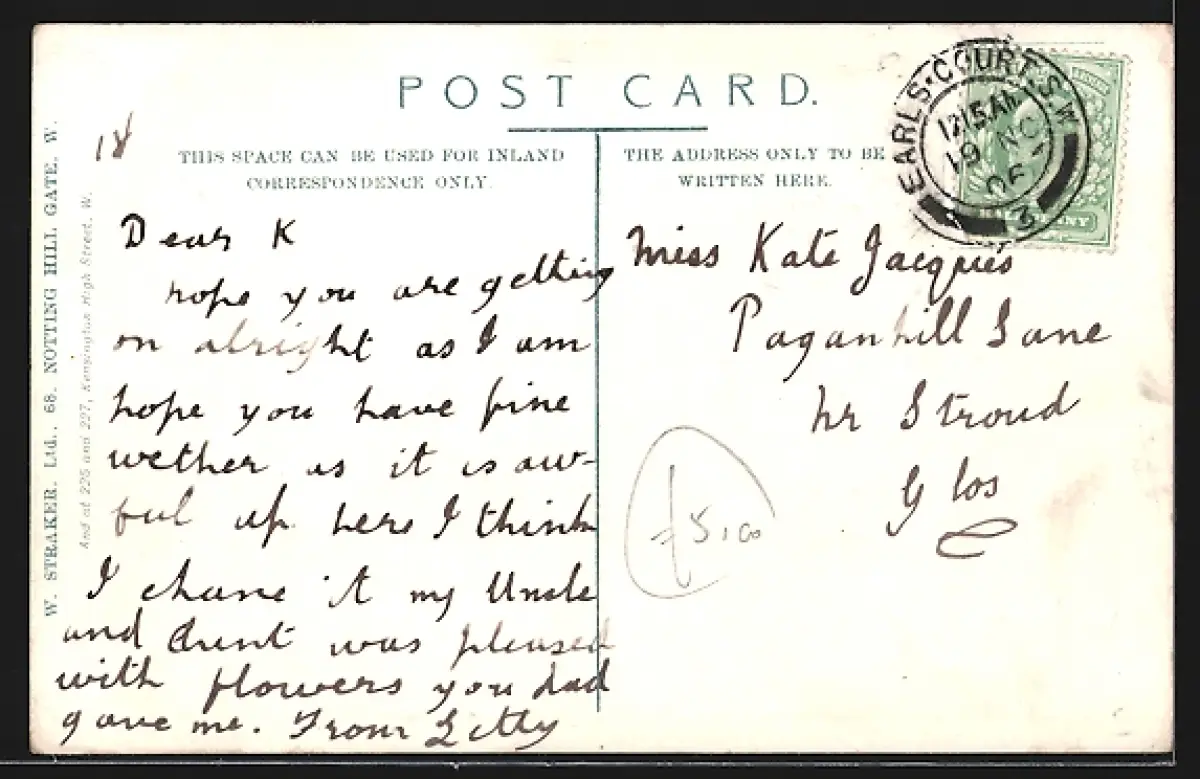 POST CARD.
18
THIS SPACE CAN BE USED FOR INLAND
CORRESPONDENCE ONLY.
THE ADDRESS ONLY TO BE
WRITTEN HERE.
EARLS·COURT·S.W
12.15AM
19 NO
06
3
HALFPENNY
Dear K
hope you are getting
on alright as I am
hope you have fine
wether as it is aw-
ful up here I think
I chane it my Uncle
and Aunt was pleased
with flowers you dad
gave me. From Letty
Miss Kate Jacques
Paganhill Lane
nr Stroud
Glos
£5.00
W. STRAKER. Ltd., 68. NOTTING HILL GATE. W.
And at 225 and 227, Kensington High Street. W.